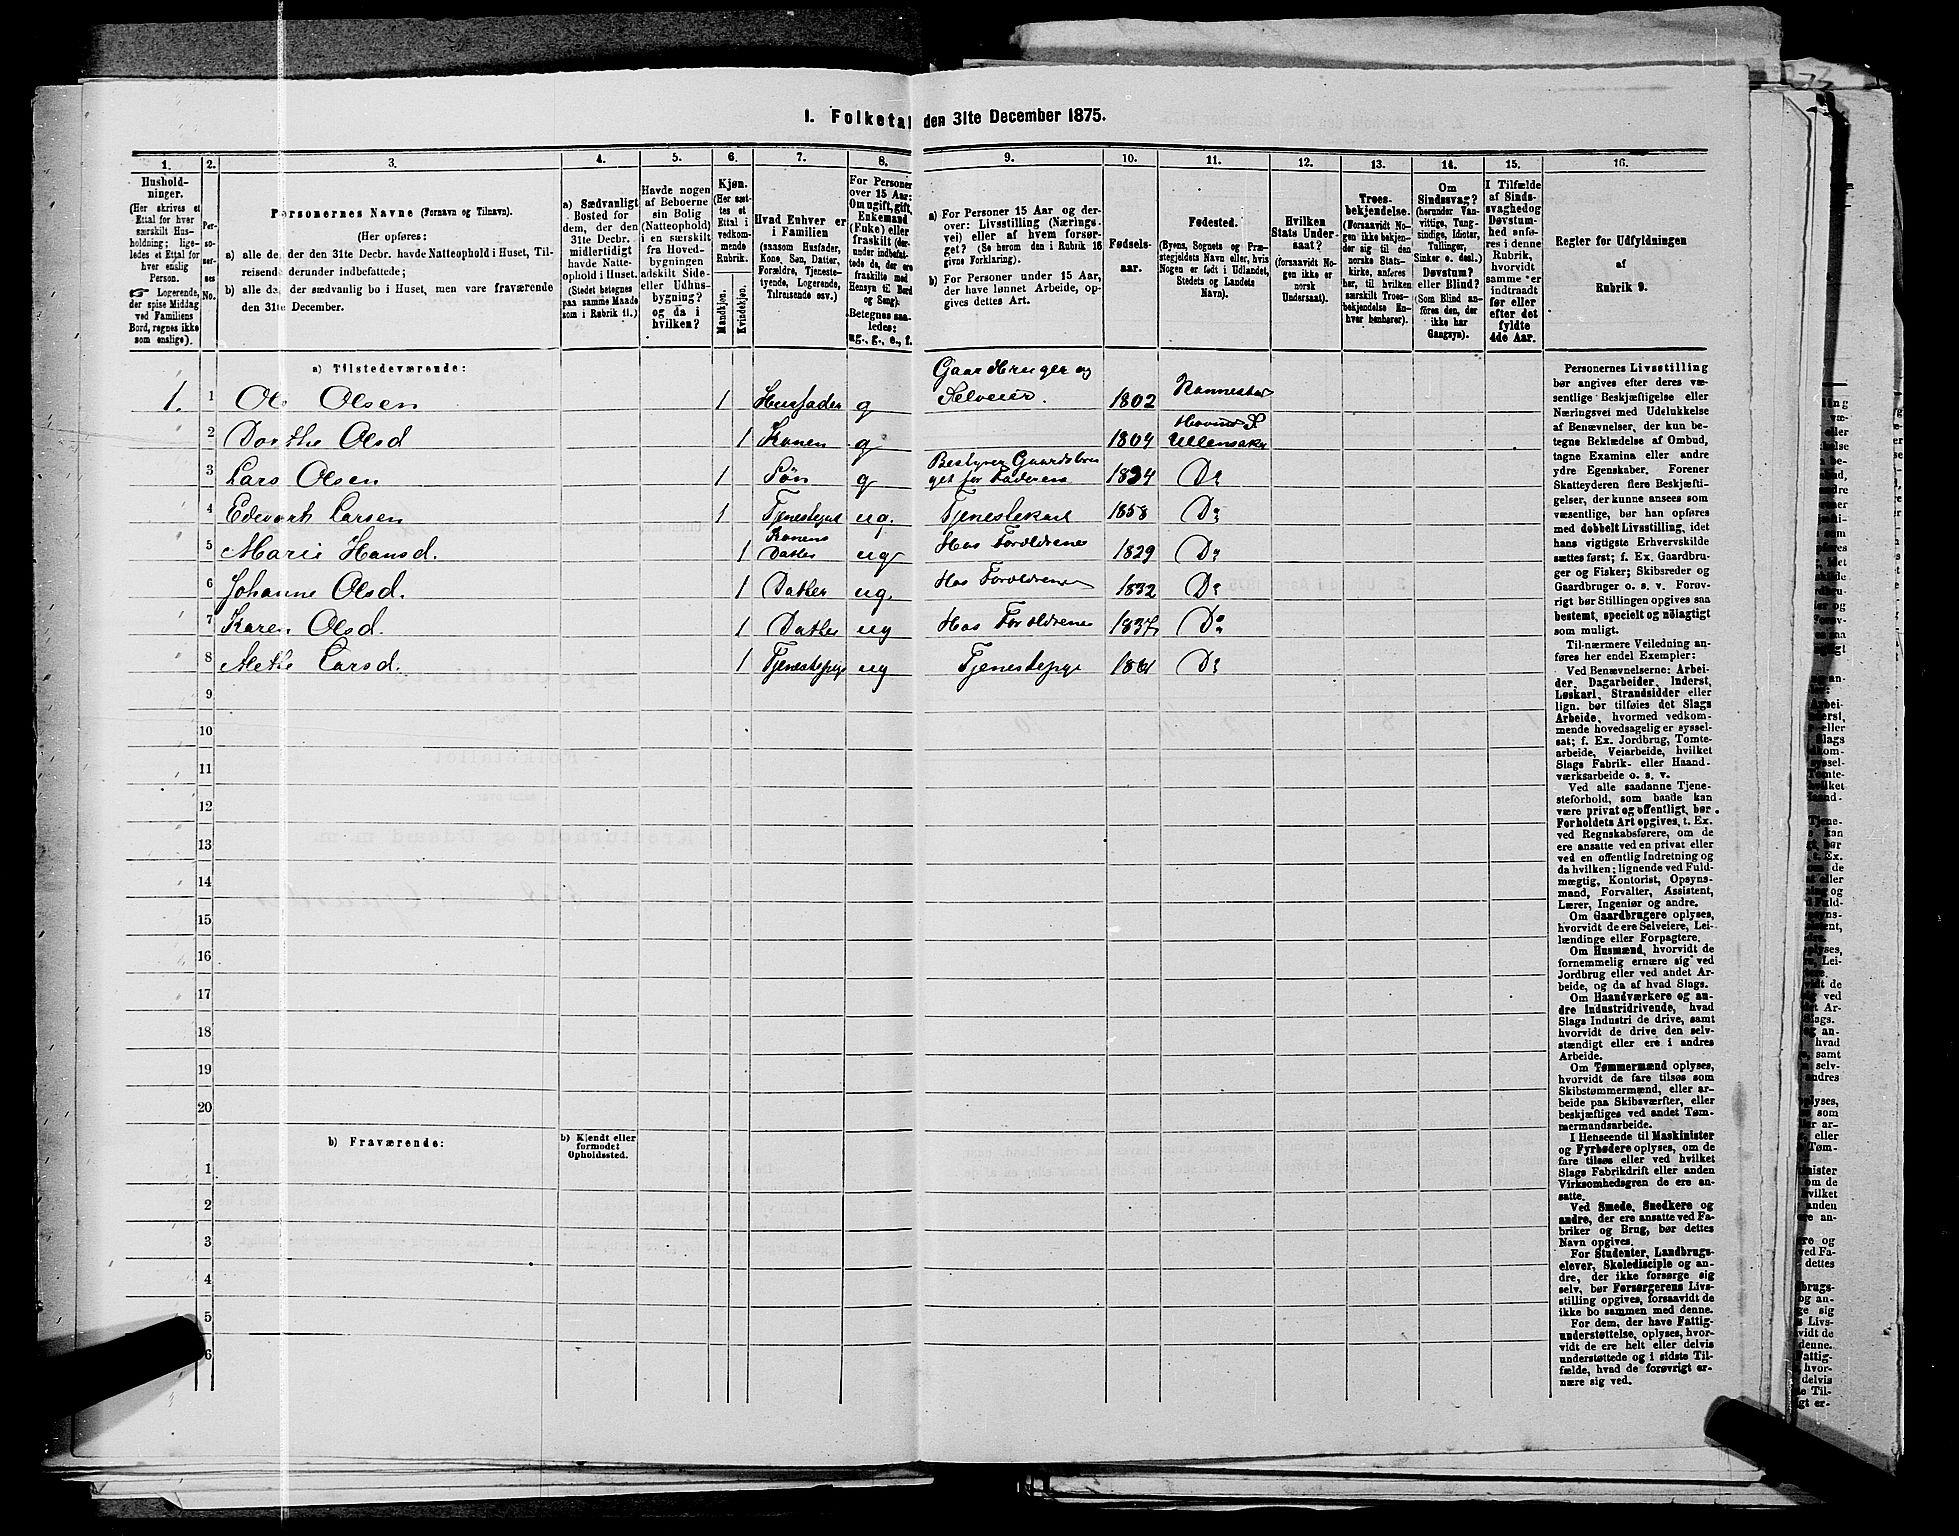 I. Folketal den 31te December 1875.
1. 2. 3. 4. 5. 6. 7. 8. 9. 10. 11. 12. 13. 14. 15. 16.
Hushold-
ninger.
(Her skrives et
Ettal for hver
særskilt Hus-
holdning; lige-
ledes et Ettal for
hver enslig
Person.
☞ Logerende,
der spise Middag
ved Familiens
Bord, regnes ikke
som enslige).
Per-
so-
ner-
nes
No.
Personernes Navne (Fornavn og Tilnavn).
(Her opføres:
a) alle de, der den 31te Decbr. havde Natteophold i Huset, Til-
reisende derunder indbefattede;
b) alle de, der sædvanlig bo i Huset, men vare fraværende
den 31te December.
a) Sædvanligt
Bosted for
dem, der den
31te Decbr.
midlertidigt
havde Natte-
ophold i Huset.
(Stedet betegnes
paa samme Maade
som i Rubrik 11.)
Havde nogen
af Beboerne
sin Bolig
(Natteophold)
i en særskilt
fra Hoved-
bygningen
adskilt Side-
eller Udhus-
bygning?
og da i
hvilken?
Kjøn.
(Her sæt-
tes et
Ettal i
vedkom-
mende
Rubrik.
Mandkjøn.
Kvindekjøn.
Hvad Enhver er
i Familien
(saasom Husfader,
Kone, Søn, Datter,
Forældre, Tjeneste-
tyende, Logerende,
Tilreisende osv.)
For Personer
over 15 Aar:
Om ugift, gift,
Enkemand
(Enke) eller
fraskilt (der-
under indbefat-
tede de, der ere
fraskilte med
Hensyn til Bord
og Seng).
Betegnes saa-
ledes:
ug., g., e., f.
a) For Personer 15 Aar og der-
over: Livsstilling (Nærings-
vei) eller af hvem forsør-
get? (Se herom den i Rubrik 16
givne Forklaring).
b) For Personer under 15 Aar,
der have lønnet Arbeide, op-
gives dettes Art.
Fødsels-
aar.
Fødested.
(Byens, Sognets og Præ-
stegjeldets Navn eller, hvis
Nogen er født i Udlandet,
Stedets og Landets
Navn).
Hvilken
Stats Under-
saat?
(forsaavidt No-
gen ikke er
norsk
Undersaat).
Troes-
bekjendelse.
(Forsaavidt No-
gen ikke bekjen-
der sig til den
norske Stats-
kirke, anføres
her, til hvilken
særskilt Troes-
bekjendelse En-
hver henhører).
Om
Sindssvag?
(herunder Van-
vittige, Tung-
sindige, Idioter,
Tullinger,
Sinker o. desl.)
Døvstum?
eller Blind?
(Som Blind an-
føres den, der
ikke har
Gangsyn).
I Tilfælde
af Sinds-
svaghed og
Døvstum-
hed anfø-
res i denne
Rubrik,
hvorvidt
samme er
indtraadt
før eller
efter det
fyldte
4de Aar.
Regler for Udfyldningen
af
Rubrik 9.
a) Tilstedeværende:
1. 1 Ole Olsen 1 Husfader g Gaardbruger og Selveier. 1802 Nannestad
2 Dorthe Olsd 1 Konen g 1804 Hovind S. Ullensaker
3 Lars Olsen 1 Søn g Bestyrer Gaardsbru get for Faderen 1834 Do
4 Edevart Larsen 1 Tjenestegut ug. Tjenestekarl 1858 Do
5 Marie Hansd. 1 Konens Datter ug Hos Forældrene 1829 Do
6 Johanne Olsd. 1 Datter ug. Hos Forældrene 1832 Do
7 Karen Olsd. 1 Datter ug Hos Forældrene 1837 Do
8 Mette Larsd. 1 Tjenestepige ug Tjenestepige 1861 Do
9
10
11
12
13
14
15
16
17
18
19
20
b) Fraværende:
b) Kjendt eller
formodet
Opholdssted.
1
2
3
4
5
6
Personernes Livsstilling
bør angives efter deres væ-
sentlige Beskjæftigelse eller
Næringsvei med Udelukkelse
af Benævnelser, der kun be-
tegne Beklædelse af Ombud,
tagne Examina eller andre
ydre Egenskaber. Forener
Skatteyderen flere Beskjæfti-
gelser, der kunne ansees som
væsentlige, bør han opføres
med dobbelt Livsstilling, idet
hans vigtigste Erhvervskilde
sættes først; f. Ex. Gaardbru-
ger og Fisker; Skibsreder og
Gaardbruger o. s. v. Forøv-
rigt bør Stillingen opgives saa
bestemt, specielt og nøiagtigt
som muligt.
Til nærmere Veiledning an-
føres her endel Exempler:
Ved Benævnelserne: Arbei-
der, Dagarbeider, Inderst,
Løskarl, Strandsidder eller
lign. bør tilføies det Slags
Arbeide, hvormed vedkom-
mende hovedsagelig er syssel-
sat; f. Ex. Jordbrug, Tomte-
arbeide, Veiarbeide, hvilket
Slags Fabrik- eller Haand-
værksarbeide o. s. v.
Ved alle saadanne Tjene-
steforhold, som baade kan
være privat og offentligt, bør
Forholdets Art opgives, t. Ex.
ved Regnskabsførere, om de
ere ansatte ved en privat eller
ved en offentlig Indretning og
da hvilken; lignende ved Fuld-
mægtig, Kontorist, Opsyns-
mand, Forvalter, Assistent,
Lærer, Ingeniør og andre.
Om Gaardbrugere oplyses,
hvorvidt de ere Selveiere, Lei-
lændinge eller Forpagtere.
Om Husmænd, hvorvidt de
fornemmelig ernære sig ved
Jordbrug eller ved andet Ar-
beide, og da af hvad Slags.
Om Haandværkere og an-
dre Industridrivende, hvad
Slags Industri de drive, samt
hvorvidt de drive den selv-
stændigt eller ere i andres
Arbeide.
Om Tømmermænd oplyses,
hvorvidt de fare tilsøs som
Skibstømmermænd, eller ar-
beide paa Skibsværfter, eller
beskjæftiges ved andet Tøm-
mermandsarbeide.
I Henseende til Maskinister
og Fyrbødere oplyses, om de
fare tilsøs eller ved hvilket
Slags Fabrikdrift eller anden
Virksomhedsgren de ere an-
satte.
Ved Smede, Snedkere og
andre, der ere ansatte ved Fa-
briker og Brug, bør dettes
Navn opgives.
For Studenter, Landbrugs-
elever, Skoledisciple og an-
dre, der ikke forsørge sig
selv, bør Forsørgerens Livs-
stilling opgives, forsaavidt de
ikke bo sammen med denne.
For dem, der have Fattig-
understøttelse, oplyses, hvor-
vidt de ere helt eller delvis
understøttede og i sidste Til-
fælde, hvad de forøvrigt er-
nære sig ved.